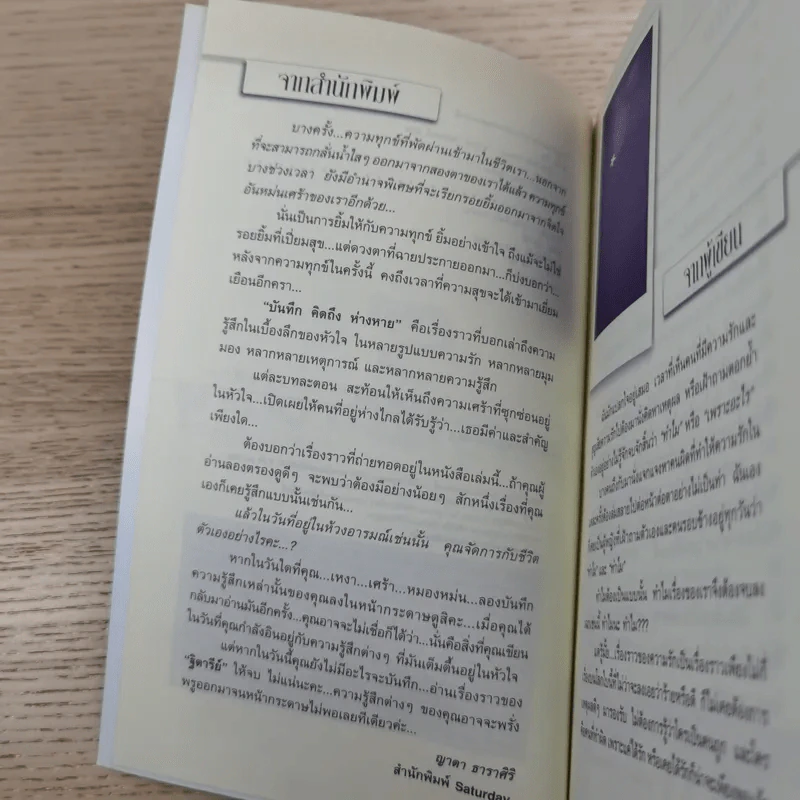 จากสำนักพิมพ์
บางครั้ง...ความทุกข์ที่พัดผ่านเข้ามาในชีวิตเรา...นอกจาก
ที่จะสามารถกลั่นน้ำใสๆ ออกมาจากสองตาของเราได้แล้ว ความทุกข์
บางช่วงเวลา ยังมีอำนาจพิเศษที่จะเรียกรอยยิ้มออกมาจากจิตใจ
อันหม่นเศร้าของเราอีกด้วย...
นั่นเป็นการยิ้มให้กับความทุกข์ ยิ้มอย่างเข้าใจ ถึงแม้จะไม่ใช่
รอยยิ้มที่เปี่ยมสุข...แต่ดวงตาที่ฉายประกายออกมา...ก็บ่งบอกว่า...
หลังจากความทุกข์ในครั้งนี้ คงถึงเวลาที่ความสุขจะได้เข้ามาเยี่ยม
เยือนอีกครา...
"บันทึก คิดถึง ห่างหาย" คือเรื่องราวที่บอกเล่าถึงความ
รู้สึกในเบื้องลึกของหัวใจ ในหลายรูปแบบความรัก หลากหลายมุม
มอง หลากหลายเหตุการณ์ และหลากหลายความรู้สึก
แต่ละบทละตอน สะท้อนให้เห็นถึงความเศร้าที่ซุกซ่อนอยู่
ในหัวใจ...เปิดเผยให้คนที่อยู่ห่างไกลได้รับรู้ว่า...เธอมีค่าและสำคัญ
เพียงใด...
ต้องบอกว่าเรื่องราวที่ถ่ายทอดอยู่ในหนังสือเล่มนี้...ถ้าคุณผู้
อ่านลองตรองดูดีๆ จะพบว่าต้องมีอย่างน้อยๆ สักหนึ่งเรื่องที่คุณ
เองก็เคยรู้สึกแบบนั้นเช่นกัน...
แล้วในวันที่อยู่ในห้วงอารมณ์เช่นนั้น คุณจัดการกับชีวิต
ตัวเองอย่างไรคะ...?
หากในวันใดที่คุณ...เหงา...เศร้า...หมองหม่น...ลองบันทึก
ความรู้สึกเหล่านั้นของคุณลงในหน้ากระดาษดูสิคะ...เมื่อคุณได้
กลับมาอ่านมันอีกครั้ง...คุณอาจจะไม่เชื่อก็ได้ว่า...นั่นคือสิ่งที่คุณเขียน
ในวันที่คุณกำลังอินอยู่กับความรู้สึกต่างๆ ที่มันเต็มตื้นอยู่ในหัวใจ
แต่หากในวันนี้คุณยังไม่มีอะไรจะบันทึก...อ่านเรื่องราวของ
"ฐิตารีย์" ให้จบ ไม่แน่นะคะ...ความรู้สึกต่างๆ ของคุณอาจจะพรั่ง
พรูออกมาจนหน้ากระดาษไม่พอเลยทีเดียวค่ะ...
ญาดา ธาราศิริ
สำนักพิมพ์ Saturday
จากผู้เขียน
เวลาที่เห็นคนที่มีความรักและ
"ทำไม" หรือ "เพราะอะไร"
ทำไมต้องเป็นแบบนั้น ทำไมเรื่องของเราจึงต้องจบลง
ทำไมนะ ทำไม???